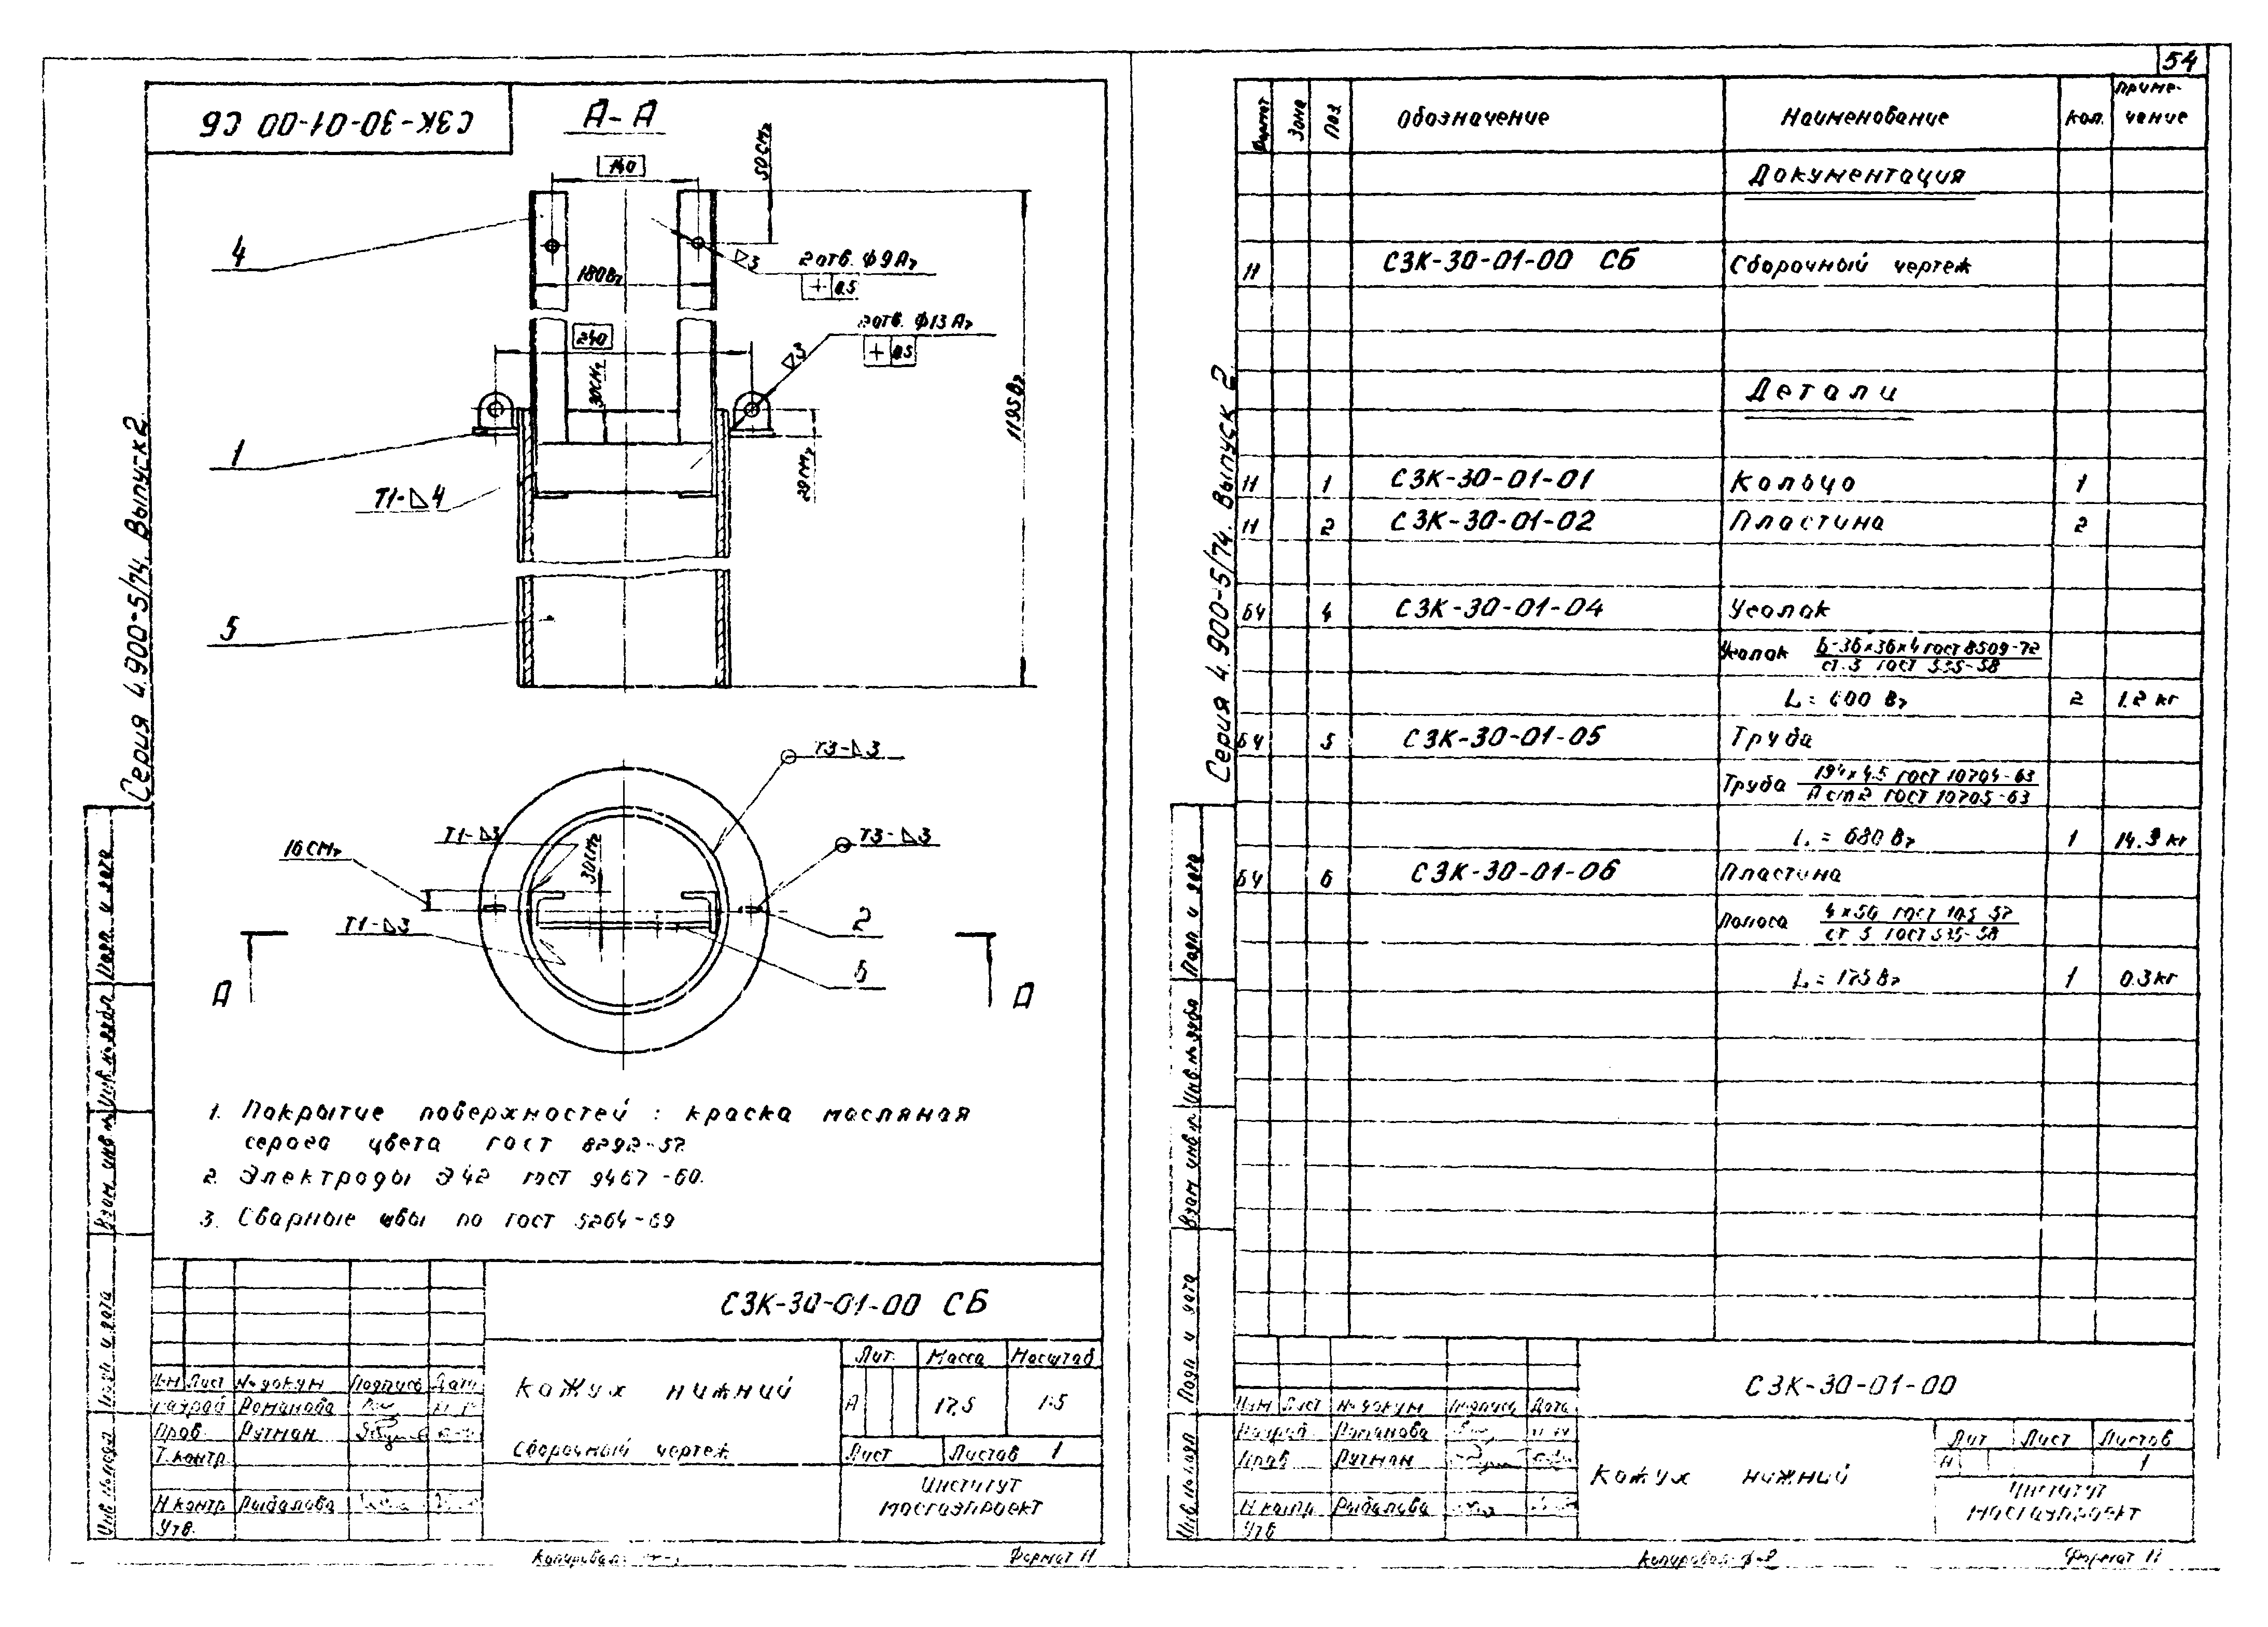 СЗК-30-01-00 СБ
А-А
140
50СМ₇
4
2 отв. Ф9А₇
180В₇
2отв. Ф13А₇
240
30СМ₇
1195В₇
1
Т1-4
29М₇
5
Т3-3
Т1-3
Т3-3
16СМ₇
30СМ₇
Т1-3
2
6
А
А
1. Покрытие поверхностей : краска масляная
серого цвета ГОСТ 8292-57.
2. Электроды Э42 ГОСТ 9467-60.
3. Сварные швы по ГОСТ 5264-69
Серия 4.900-5/74. Выпуск 2
Подп и дата
Инв.№ дубл
Взам инв №
Подп и дата
Инв № подл
СЗК-30-01-00 СБ
Кожух нижний
Сборочный чертеж
Лит. Масса Масштаб
А 17,5 1:5
Лист Листов 1
Институт
Мосгазпроект
Изм Лист № докум Подпись Дата
Разраб Романова
Пров Рутман
Т.контр.
Н контр Рыбалова
Утв.
Копировал:
Формат 11
54
Формат Зона Поз. Обозначение Наименование Кол. Приме-
чание
Документация
11 СЗК-30-01-00 СБ Сборочный чертеж
Детали
11 1 СЗК-30-01-01 Кольцо 1
11 2 СЗК-30-01-02 Пластина 2
БЧ 4 СЗК-30-01-04 Уголок
Уголок Б-36×36×4 ГОСТ 8509-72
ст.3 ГОСТ 535-58
L = 600 В₇ 2 1.2 кг
БЧ 5 СЗК-30-01-05 Труба
Труба 194×4.5 ГОСТ 10704-63
ГОСТ 10705-63
L = 680 В₇ 1 14.3 кг
БЧ 6 СЗК-30-01-06 Пластина
Полоса 4×50 ГОСТ 103-57
ГОСТ 535-58
L = 175 В₇ 1 0.3 кг
Серия 4.900-5/74. Выпуск 2
Подп и дата
Инв.№ дубл
Взам инв №
Подп и дата
Инв № подл
СЗК-30-01-00
Изм Лист № докум Подпись Дата
Разраб Романова
Пров Рутман
Н контр Рыбалова
Утв
Кожух нижний
Лит Лист Листов
1
Институт
Мосгазпроект
Копировал
Формат 11